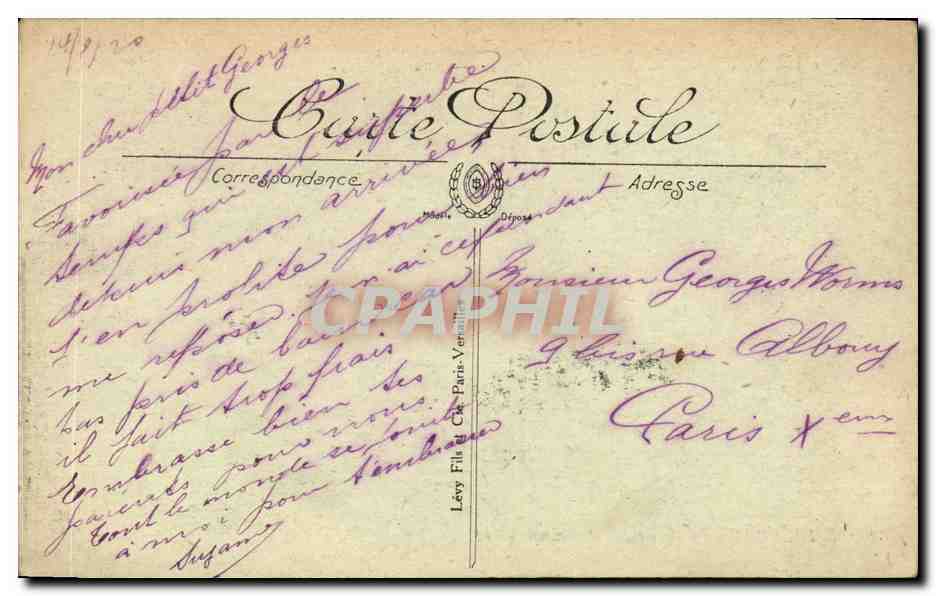 14/8/20
Mon cher petit Georges
Favorisée par le
temps qui est superbe
depuis mon arrivée,
j'en profite pour bien
me reposer. Je n'ai cependant
pas pris de bain car
il fait trop frais
Embrasse bien tes
parents pour nous.
Tout le monde se joint
à moi pour t'embrasser
Suzanne
Carte Postale
Correspondance
Adresse
Modèle Déposé
CPAPHIL
Lévy Fils et Cie, Paris-Versailles
Monsieur Georges Worms
9 bis rue Albouy
Paris Xeme